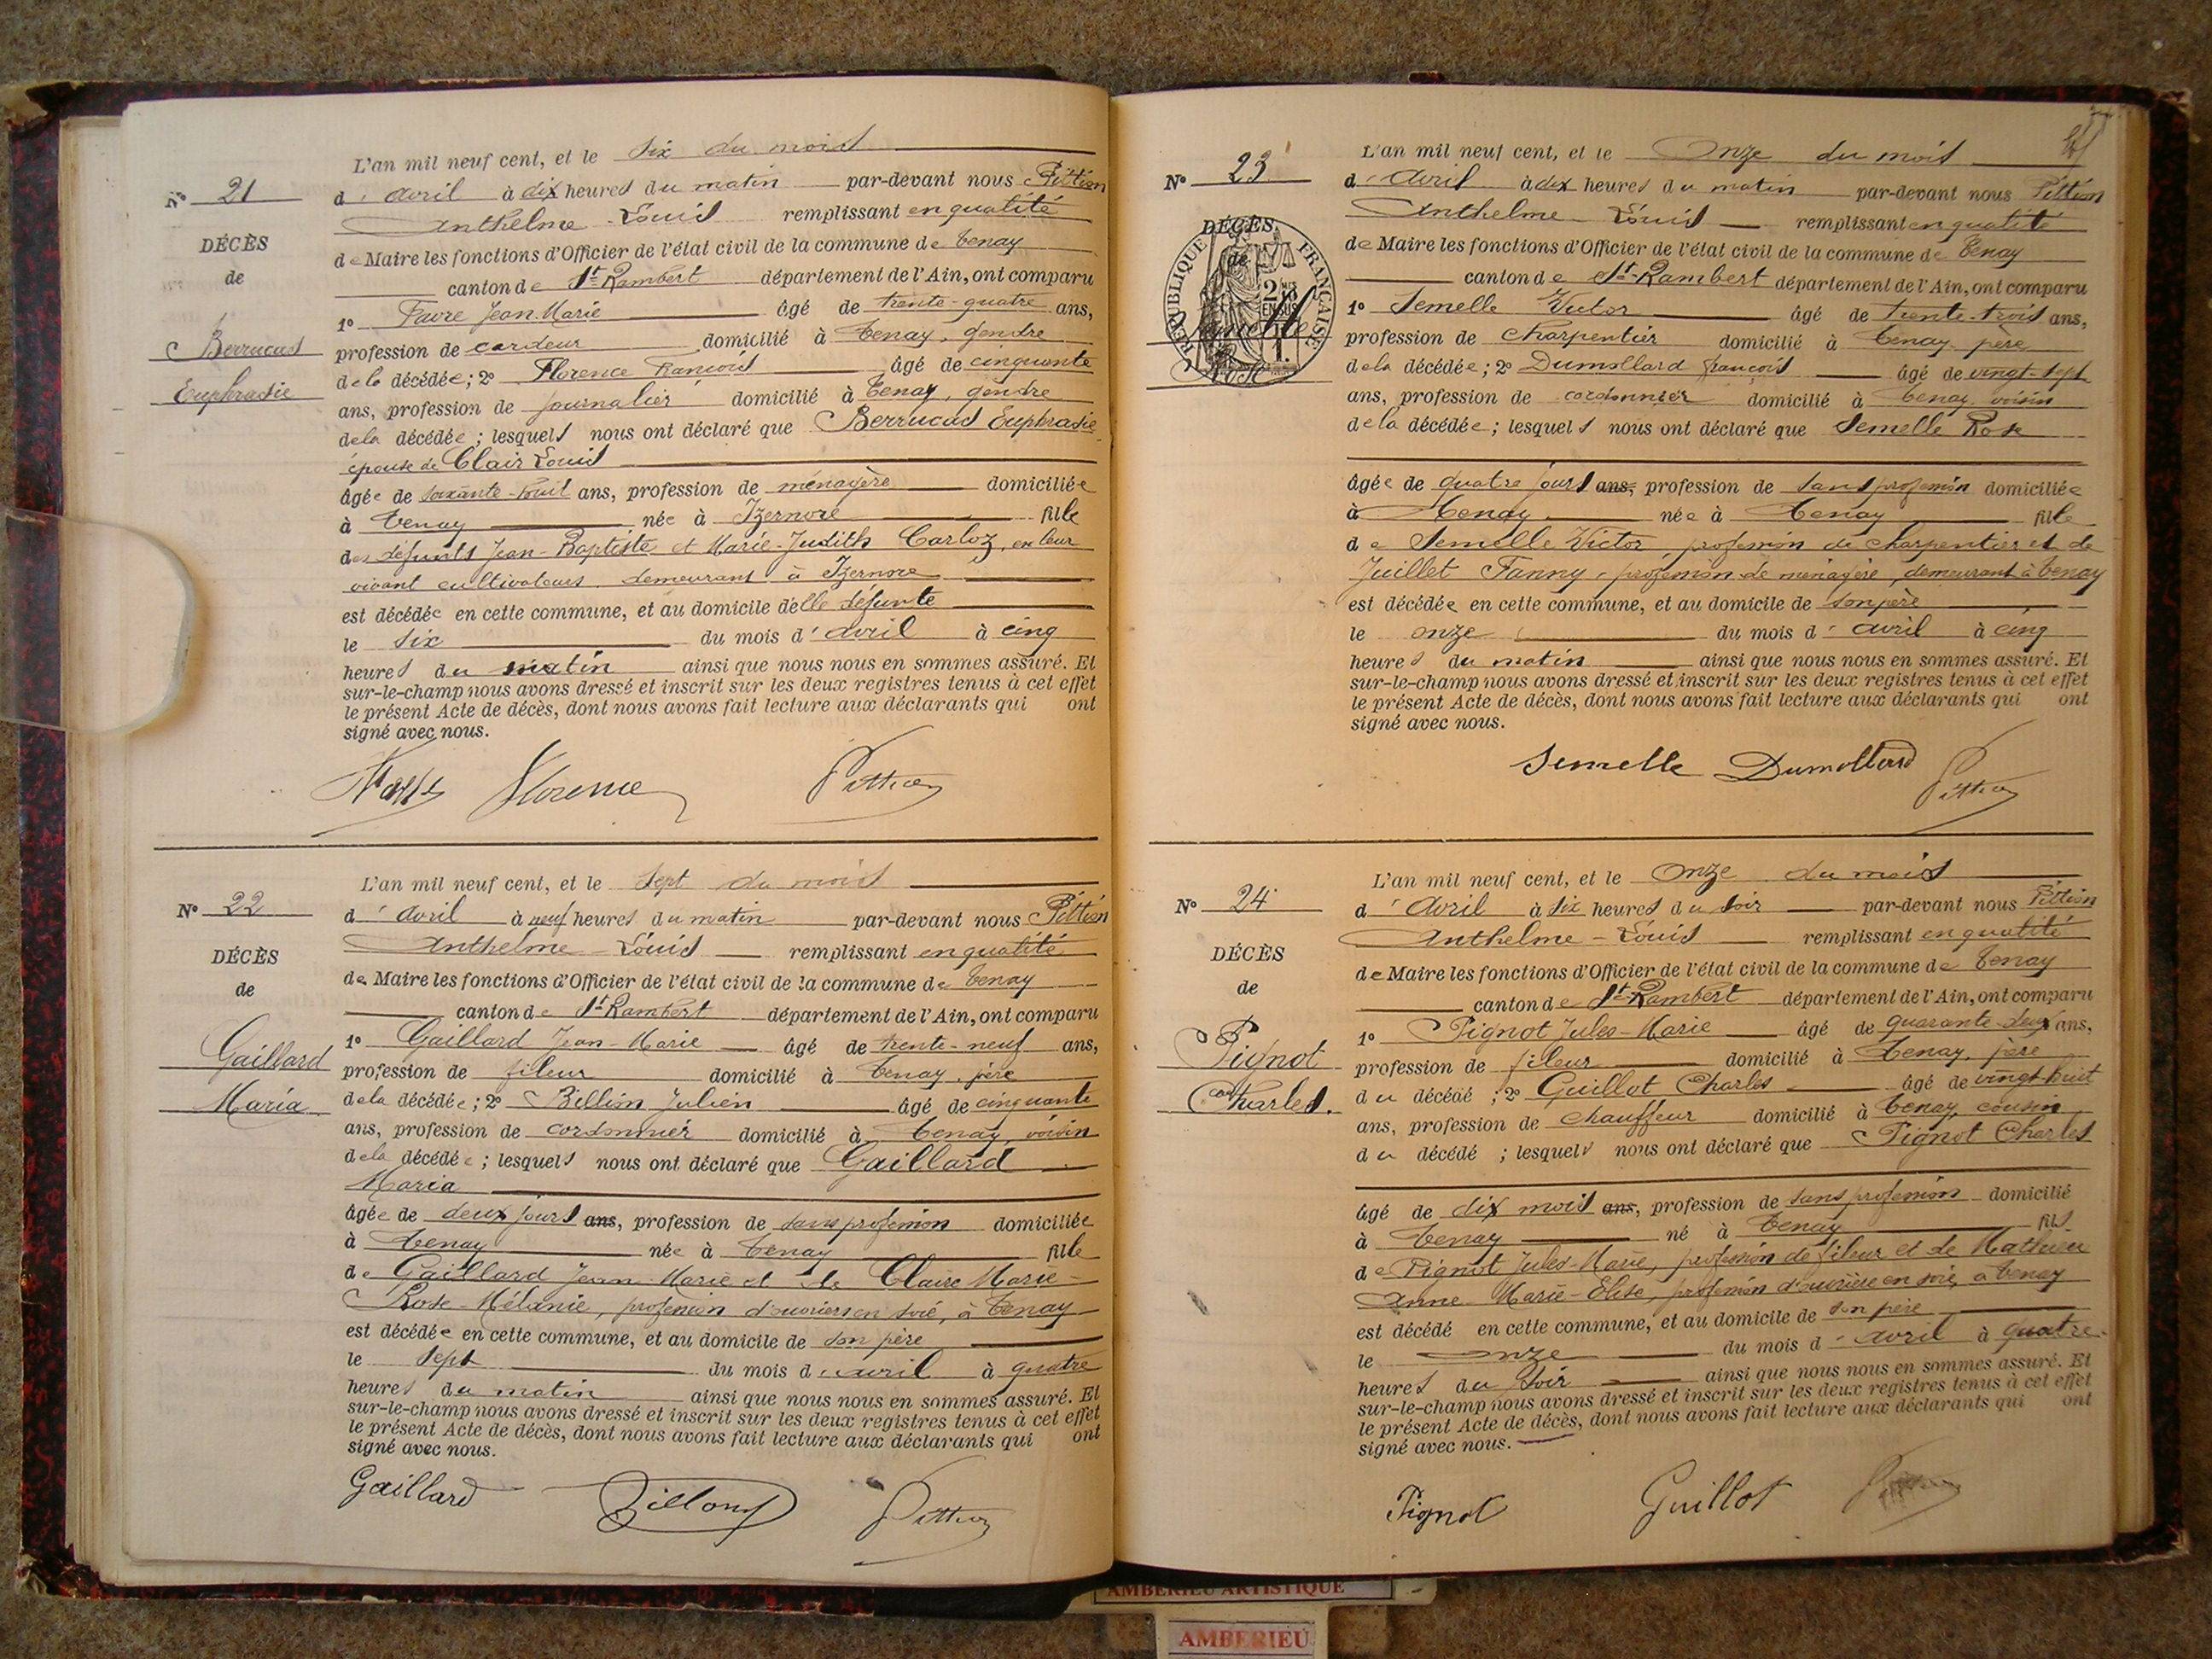 L'an mil neuf cent, et le six du mois
N° 21
d'avril à dix heures du matin par-devant nous Pittion
Anthelme-Louis remplissant en qualité
DÉCÈS
de Maire les fonctions d'Officier de l'état civil de la commune de Tenay
de
canton de St-Rambert département de l'Ain, ont comparu
1° Favre Jean-Marie âgé de trente-quatre ans,
Berrucas
profession de cardeur domicilié à Tenay, gendre
Euphrasie
de la décédée; 2° Florence François âgé de cinquante
ans, profession de journalier domicilié à Tenay, gendre
de la décédée; lesquels nous ont déclaré que Berrucas Euphrasie
épouse de Clair Louis
âgée de soixante-huit ans, profession de ménagère domiciliée
à Tenay née à Izernore fille
des défunts Jean-Baptiste et Marie-Judith Carloz, en leur
vivant cultivateurs demeurant à Izernore
est décédée en cette commune, et au domicile d'elle défunte
le six du mois d'avril à cinq
heures du matin ainsi que nous nous en sommes assuré. Et
sur-le-champ nous avons dressé et inscrit sur les deux registres tenus à cet effet
le présent Acte de décès, dont nous avons fait lecture aux déclarants qui ont
signé avec nous.
Florence Pittion
L'an mil neuf cent, et le sept du mois
N° 22
d'avril à neuf heures du matin par-devant nous Pittion
Anthelme-Louis remplissant en qualité
DÉCÈS
de Maire les fonctions d'Officier de l'état civil de la commune de Tenay
de
canton de St-Rambert département de l'Ain, ont comparu
Gaillard
1° Gaillard Jean-Marie âgé de trente-neuf ans,
profession de fileur domicilié à Tenay, père
Maria
de la décédée; 2° Billion Julien âgé de cinquante
ans, profession de cordonnier domicilié à Tenay, voisin
de la décédée; lesquels nous ont déclaré que Gaillard
Maria
âgée de deux jours ans, profession de sans profession domiciliée
à Tenay née à Tenay fille
de Gaillard Jean-Marie et de Claire Marie-
Rose-Mélanie, profession d'ouvriers en soie, à Tenay
est décédée en cette commune, et au domicile de son père
le sept du mois d'avril à quatre
heures du matin ainsi que nous nous en sommes assuré. Et
sur-le-champ nous avons dressé et inscrit sur les deux registres tenus à cet effet
le présent Acte de décès, dont nous avons fait lecture aux déclarants qui ont
signé avec nous.
Gaillard Pittion
L'an mil neuf cent, et le onze du mois
N° 23
d'avril à dix heures du matin par-devant nous Pittion
Anthelme-Louis remplissant en qualité
DÉCÈS
de Maire les fonctions d'Officier de l'état civil de la commune de Tenay
de
RÉPUBLIQUE FRANÇAISE
canton de St-Rambert département de l'Ain, ont comparu
Semelle
1° Semelle Victor âgé de trente-trois ans,
profession de charpentier domicilié à Tenay, père
Rose
de la décédée; 2° Dumollard François âgé de vingt-sept
ans, profession de cordonnier domicilié à Tenay, voisin
de la décédée; lesquels nous ont déclaré que Semelle Rose
âgée de quatre jours ans, profession de sans profession domiciliée
à Tenay née à Tenay fille
de Semelle Victor, profession de charpentier et de
Juillet Fanny, profession de ménagère, demeurant à Tenay
est décédée en cette commune, et au domicile de son père
le onze du mois d'avril à cinq
heures du matin ainsi que nous nous en sommes assuré. Et
sur-le-champ nous avons dressé et inscrit sur les deux registres tenus à cet effet
le présent Acte de décès, dont nous avons fait lecture aux déclarants qui ont
signé avec nous.
Semelle Dumollard Pittion
L'an mil neuf cent, et le onze du mois
N° 24
d'avril à six heures du soir par-devant nous Pittion
Anthelme-Louis remplissant en qualité
DÉCÈS
de Maire les fonctions d'Officier de l'état civil de la commune de Tenay
de
canton de St-Rambert département de l'Ain, ont comparu
Pignot
1° Pignot Jules-Marie âgé de quarante-deux ans,
profession de fileur domicilié à Tenay, père
Charles.
du décédé; 2° Guillot Charles âgé de vingt-huit
ans, profession de chauffeur domicilié à Tenay, cousin
du décédé; lesquels nous ont déclaré que Pignot Charles
âgé de dix mois ans, profession de sans profession domicilié
à Tenay né à Tenay fils
de Pignot Jules-Marie, profession de fileur et de Mathieu
Anne-Marie-Elise, profession d'ouvrière en soie, à Tenay
est décédé en cette commune, et au domicile de son père
le onze du mois d'avril à quatre
heures du soir ainsi que nous nous en sommes assuré. Et
sur-le-champ nous avons dressé et inscrit sur les deux registres tenus à cet effet
le présent Acte de décès, dont nous avons fait lecture aux déclarants qui ont
signé avec nous.
Pignot Guillot
AMBERIEU ARTISTIQUE
AMBERIEU